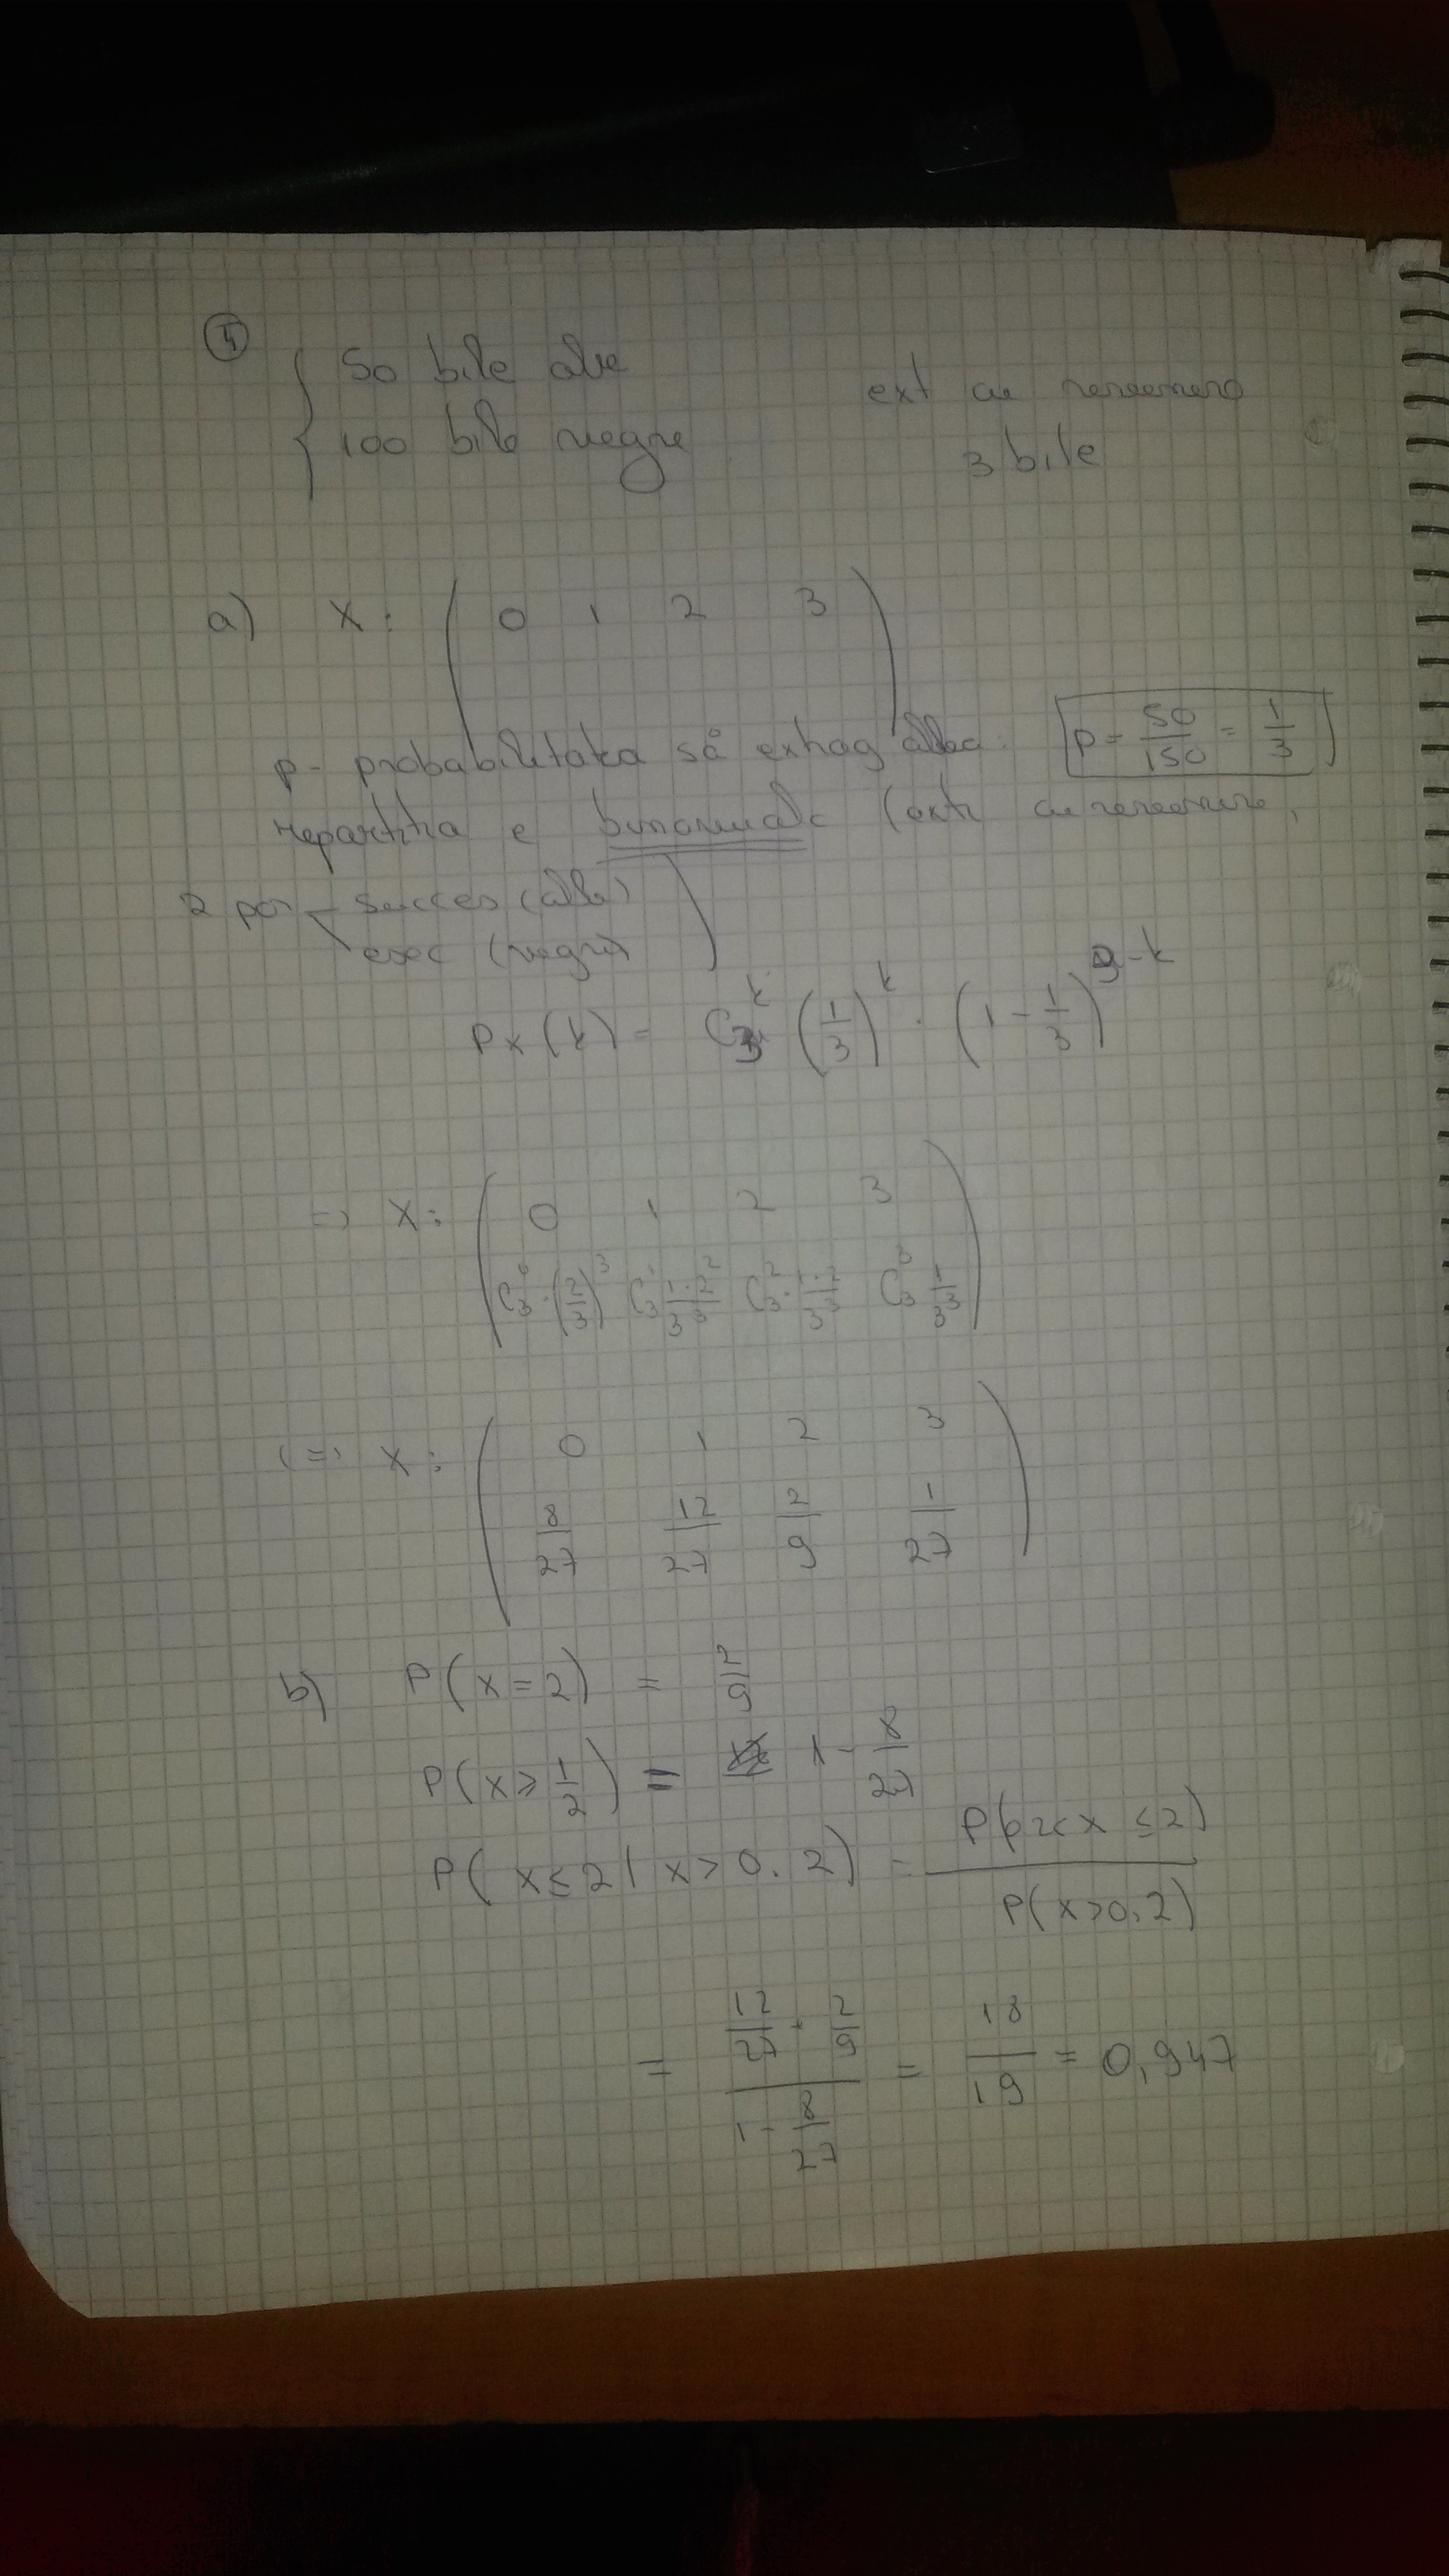 ④
50 bile albe
100 bile negre
ext cu revenire
3 bile
a) X: ( 0 1 2 3 )
p - probabilitatea să extrag albă. p = 50/150 = 1/3
repartitia e binomială (ext cu revenire,
2 pos - succes (alb)
esec (negru) )
P_X(k) = C_3^k (1/3)^k · (1 - 1/3)^{3-k}
=> X: ( 0 1 2 3
C_3^0 · (2/3)^3 C_3^1 1·2^2/3^3 C_3^2 · 1·2/3^3 C_3^3 1/3^3 )
(=> X: ( 0 1 2 3
8/27 12/27 2/9 1/27 )
b) P(X=2) = 2/9
P(X ≥ 1/2) = 1 - 8/27
P(X ≤ 2 | X > 0.2) = P(0,2 < X ≤ 2) / P(X > 0,2)
= (12/27 + 2/9) / (1 - 8/27) = 18/19 = 0,947